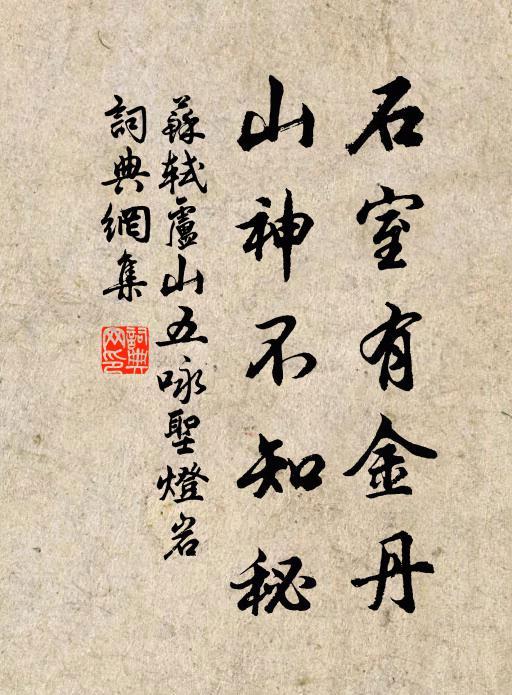 石室有金丹
山神不知秘
蘇軾盧山五咏聖燈岩
詞典網集
詞典网印